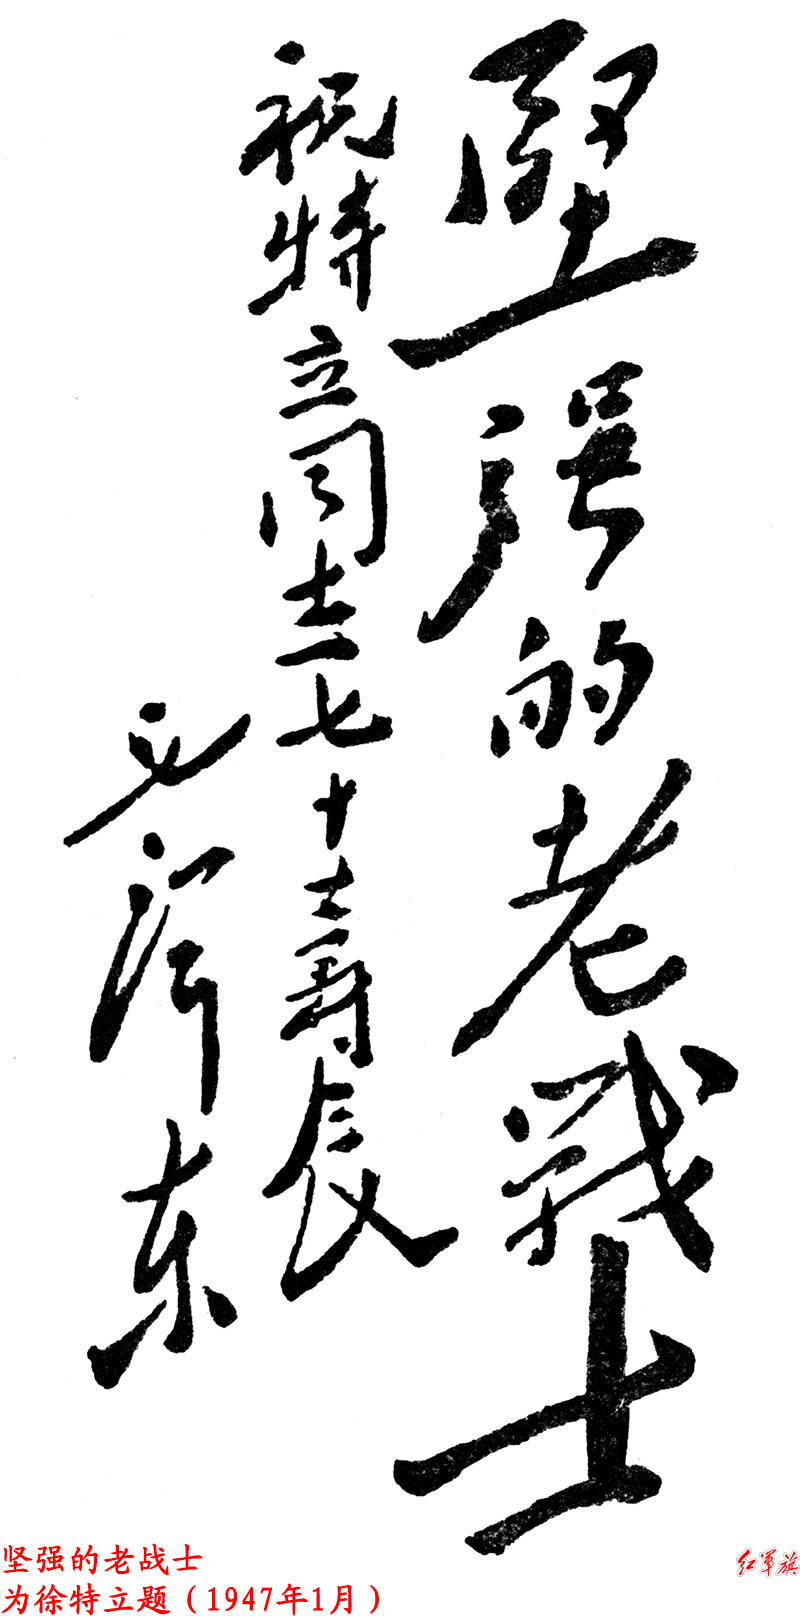 堅强的老戰士
祝特立同志七十壽辰
毛泽东
坚强的老战士
为徐特立题（1947年1月）
红军旗